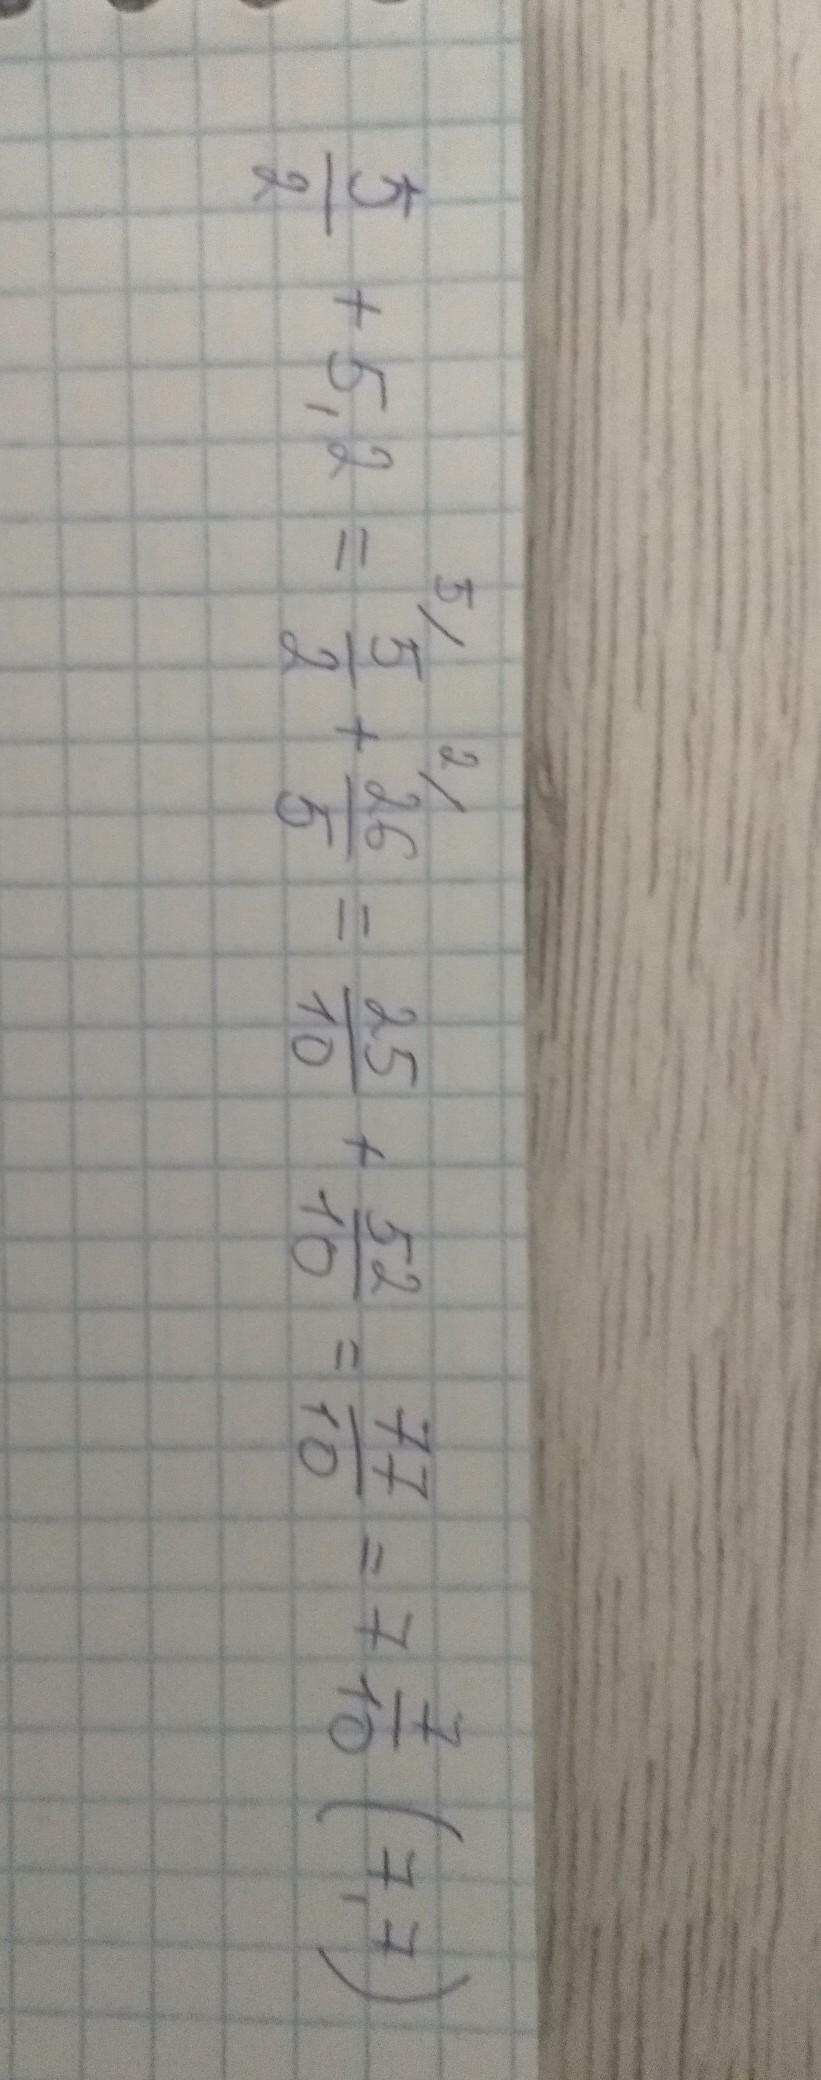 5/2 + 5,2 = ⁵/5/2 + ²/26/5 = 25/10 + 52/10 = 77/10 = 7 7/10 (7,7)